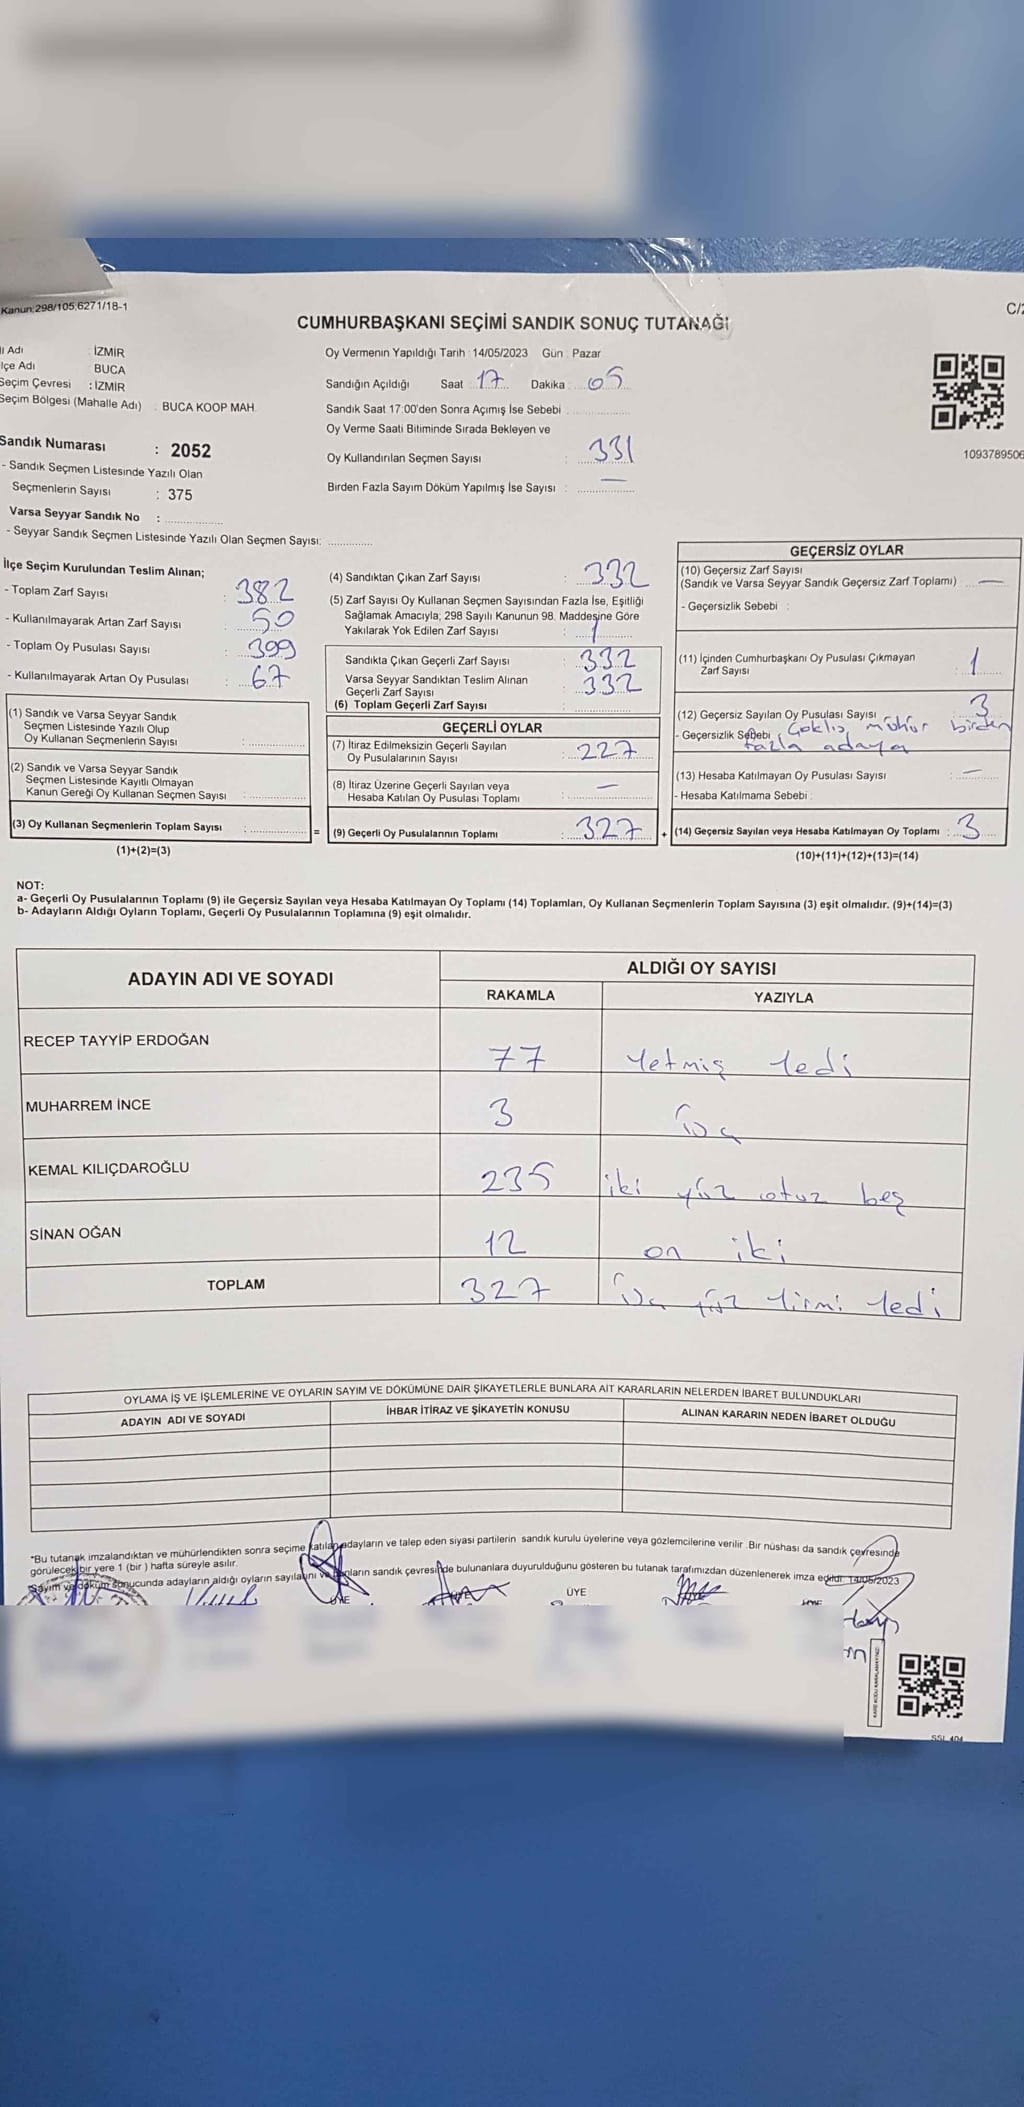 Kanun:298/105,6271/18-1
C/2
CUMHURBAŞKANI SEÇİMİ SANDIK SONUÇ TUTANAĞI
İl Adı : İZMİR
İlçe Adı : BUCA
Seçim Çevresi : İZMİR
Seçim Bölgesi (Mahalle Adı) : BUCA KOOP MAH.
Sandık Numarası : 2052
- Sandık Seçmen Listesinde Yazılı Olan
Seçmenlerin Sayısı : 375
Varsa Seyyar Sandık No :
- Seyyar Sandık Seçmen Listesinde Yazılı Olan Seçmen Sayısı:
Oy Vermenin Yapıldığı Tarih : 14/05/2023 Gün : Pazar
Sandığın Açıldığı Saat : 17 Dakika : 05
Sandık Saat 17:00'den Sonra Açımış İse Sebebi :
Oy Verme Saati Bitiminde Sırada Bekleyen ve
Oy Kullandırılan Seçmen Sayısı : 331
Birden Fazla Sayım Döküm Yapılmış İse Sayısı : —
1093789506
İlçe Seçim Kurulundan Teslim Alınan;
- Toplam Zarf Sayısı : 382
- Kullanılmayarak Artan Zarf Sayısı : 50
- Toplam Oy Pusulası Sayısı : 399
- Kullanılmayarak Artan Oy Pusulası : 67
(1) Sandık ve Varsa Seyyar Sandık
Seçmen Listesinde Yazılı Olup
Oy Kullanan Seçmenlerin Sayısı :
(2) Sandık ve Varsa Seyyar Sandık
Seçmen Listesinde Kayıtlı Olmayan
Kanun Gereği Oy Kullanan Seçmen Sayısı :
(3) Oy Kullanan Seçmenlerin Toplam Sayısı : =
(1)+(2)=(3)
(4) Sandıktan Çıkan Zarf Sayısı : 332
(5) Zarf Sayısı Oy Kullanan Seçmen Sayısından Fazla İse, Eşitliği
Sağlamak Amacıyla, 298 Sayılı Kanunun 98. Maddesine Göre
Yakılarak Yok Edilen Zarf Sayısı : 1
Sandıkta Çıkan Geçerli Zarf Sayısı : 332
Varsa Seyyar Sandıktan Teslim Alınan
Geçerli Zarf Sayısı : 332
(6) Toplam Geçerli Zarf Sayısı :
GEÇERLİ OYLAR
(7) İtiraz Edilmeksizin Geçerli Sayılan
Oy Pusulalarının Sayısı : 227
(8) İtiraz Üzerine Geçerli Sayılan veya
Hesaba Katılan Oy Pusulası Toplamı : —
(9) Geçerli Oy Pusulalarının Toplamı : 327 +
GEÇERSİZ OYLAR
(10) Geçersiz Zarf Sayısı
(Sandık ve Varsa Seyyar Sandık Geçersiz Zarf Toplamı) : —
- Geçersizlik Sebebi :
(11) İçinden Cumhurbaşkanı Oy Pusulası Çıkmayan
Zarf Sayısı : 1
(12) Geçersiz Sayılan Oy Pusulası Sayısı : 3
- Geçersizlik Sebebi : mühür birden
fazla adaya
(13) Hesaba Katılmayan Oy Pusulası Sayısı : —
- Hesaba Katılmama Sebebi :
(14) Geçersiz Sayılan veya Hesaba Katılmayan Oy Toplamı : 3
(10)+(11)+(12)+(13)=(14)
NOT:
a- Geçerli Oy Pusulalarının Toplamı (9) ile Geçersiz Sayılan veya Hesaba Katılmayan Oy Toplamı (14) Toplamları, Oy Kullanan Seçmenlerin Toplam Sayısına (3) eşit olmalıdır. (9)+(14)=(3)
b- Adayların Aldığı Oyların Toplamı, Geçerli Oy Pusulalarının Toplamına (9) eşit olmalıdır.
ADAYIN ADI VE SOYADI ALDIĞI OY SAYISI
RAKAMLA YAZIYLA
RECEP TAYYİP ERDOĞAN 77 Yetmiş Yedi
MUHARREM İNCE 3 Üç
KEMAL KILIÇDAROĞLU 235 iki yüz otuz beş
SİNAN OĞAN 12 on iki
TOPLAM 327 Üç yüz Yirmi Yedi
OYLAMA İŞ VE İŞLEMLERİNE VE OYLARIN SAYIM VE DÖKÜMÜNE DAİR ŞİKAYETLERLE BUNLARA AİT KARARLARIN NELERDEN İBARET BULUNDUKLARI
ADAYIN ADI VE SOYADI İHBAR İTİRAZ VE ŞİKAYETİN KONUSU ALINAN KARARIN NEDEN İBARET OLDUĞU
*Bu tutanak imzalandıktan ve mühürlendikten sonra seçime katılan adayların ve talep eden siyasi partilerin sandık kurulu üyelerine veya gözlemcilerine verilir .Bir nüshası da sandık çevresinde
görülecek bir yere 1 (bir ) hafta süreyle asılır.
Sayım ve döküm sonucunda adayların aldığı oyların sayılarını ve bunların sandık çevresinde bulunanlara duyurulduğunu gösteren bu tutanak tarafımızdan düzenlenerek imza edildi. 14/05/2023
ÜYE
ÜYE
ÜYE
ÜYE
SSL 404